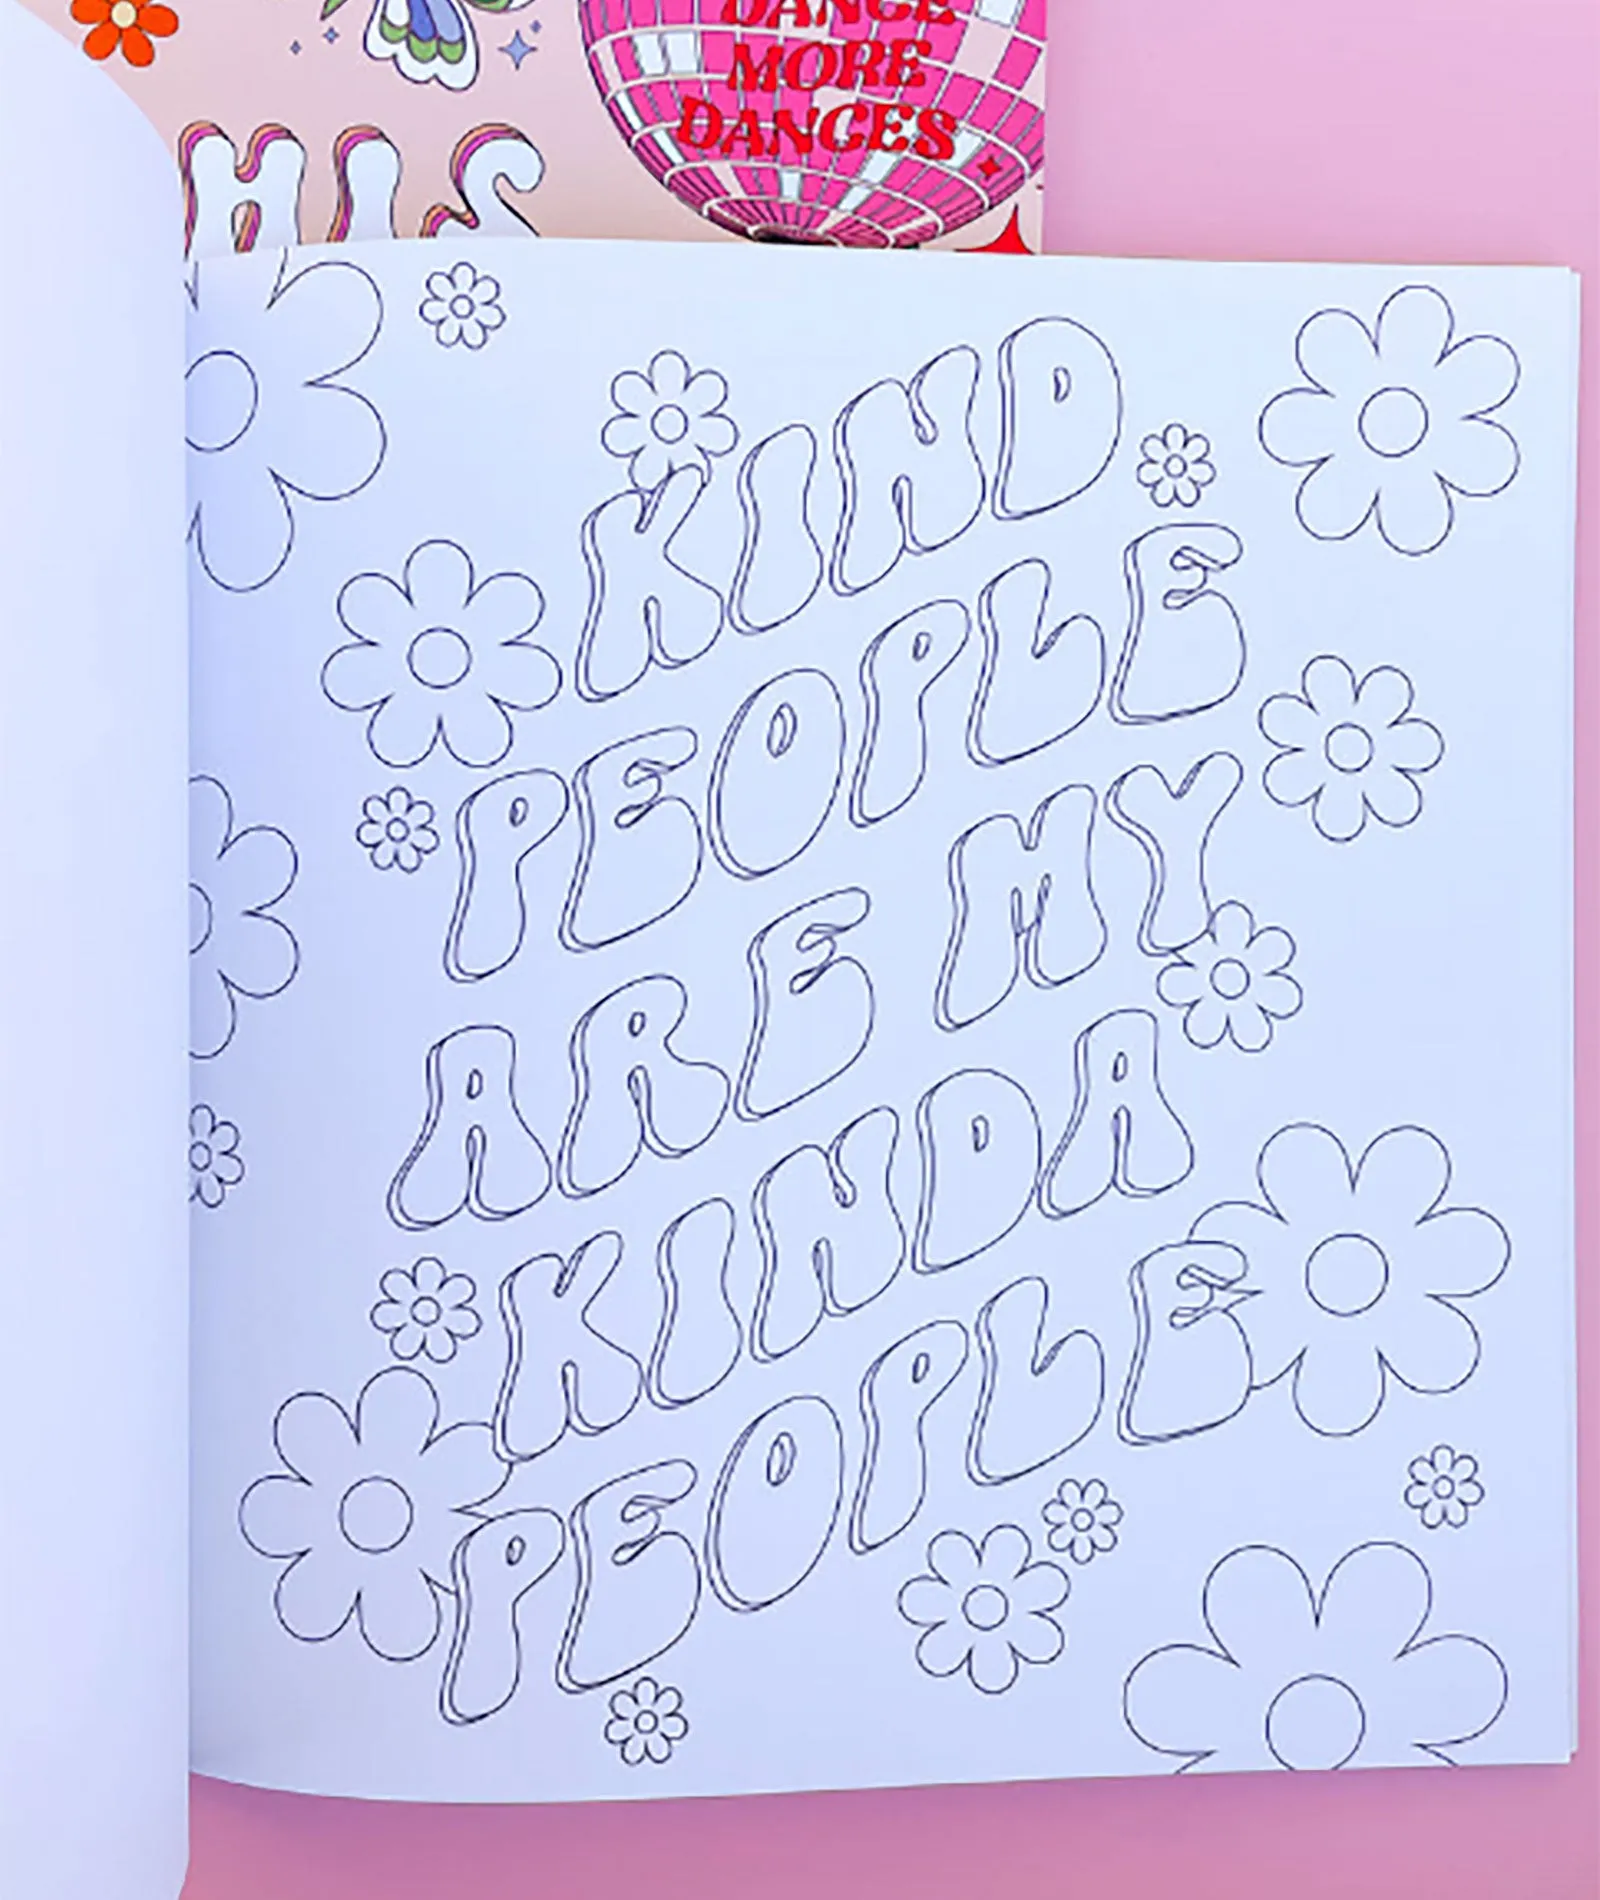 DANCE
MORE
DANCES
HIS
KIND
PEOPLE
ARE MY
KINDA
PEOPLE